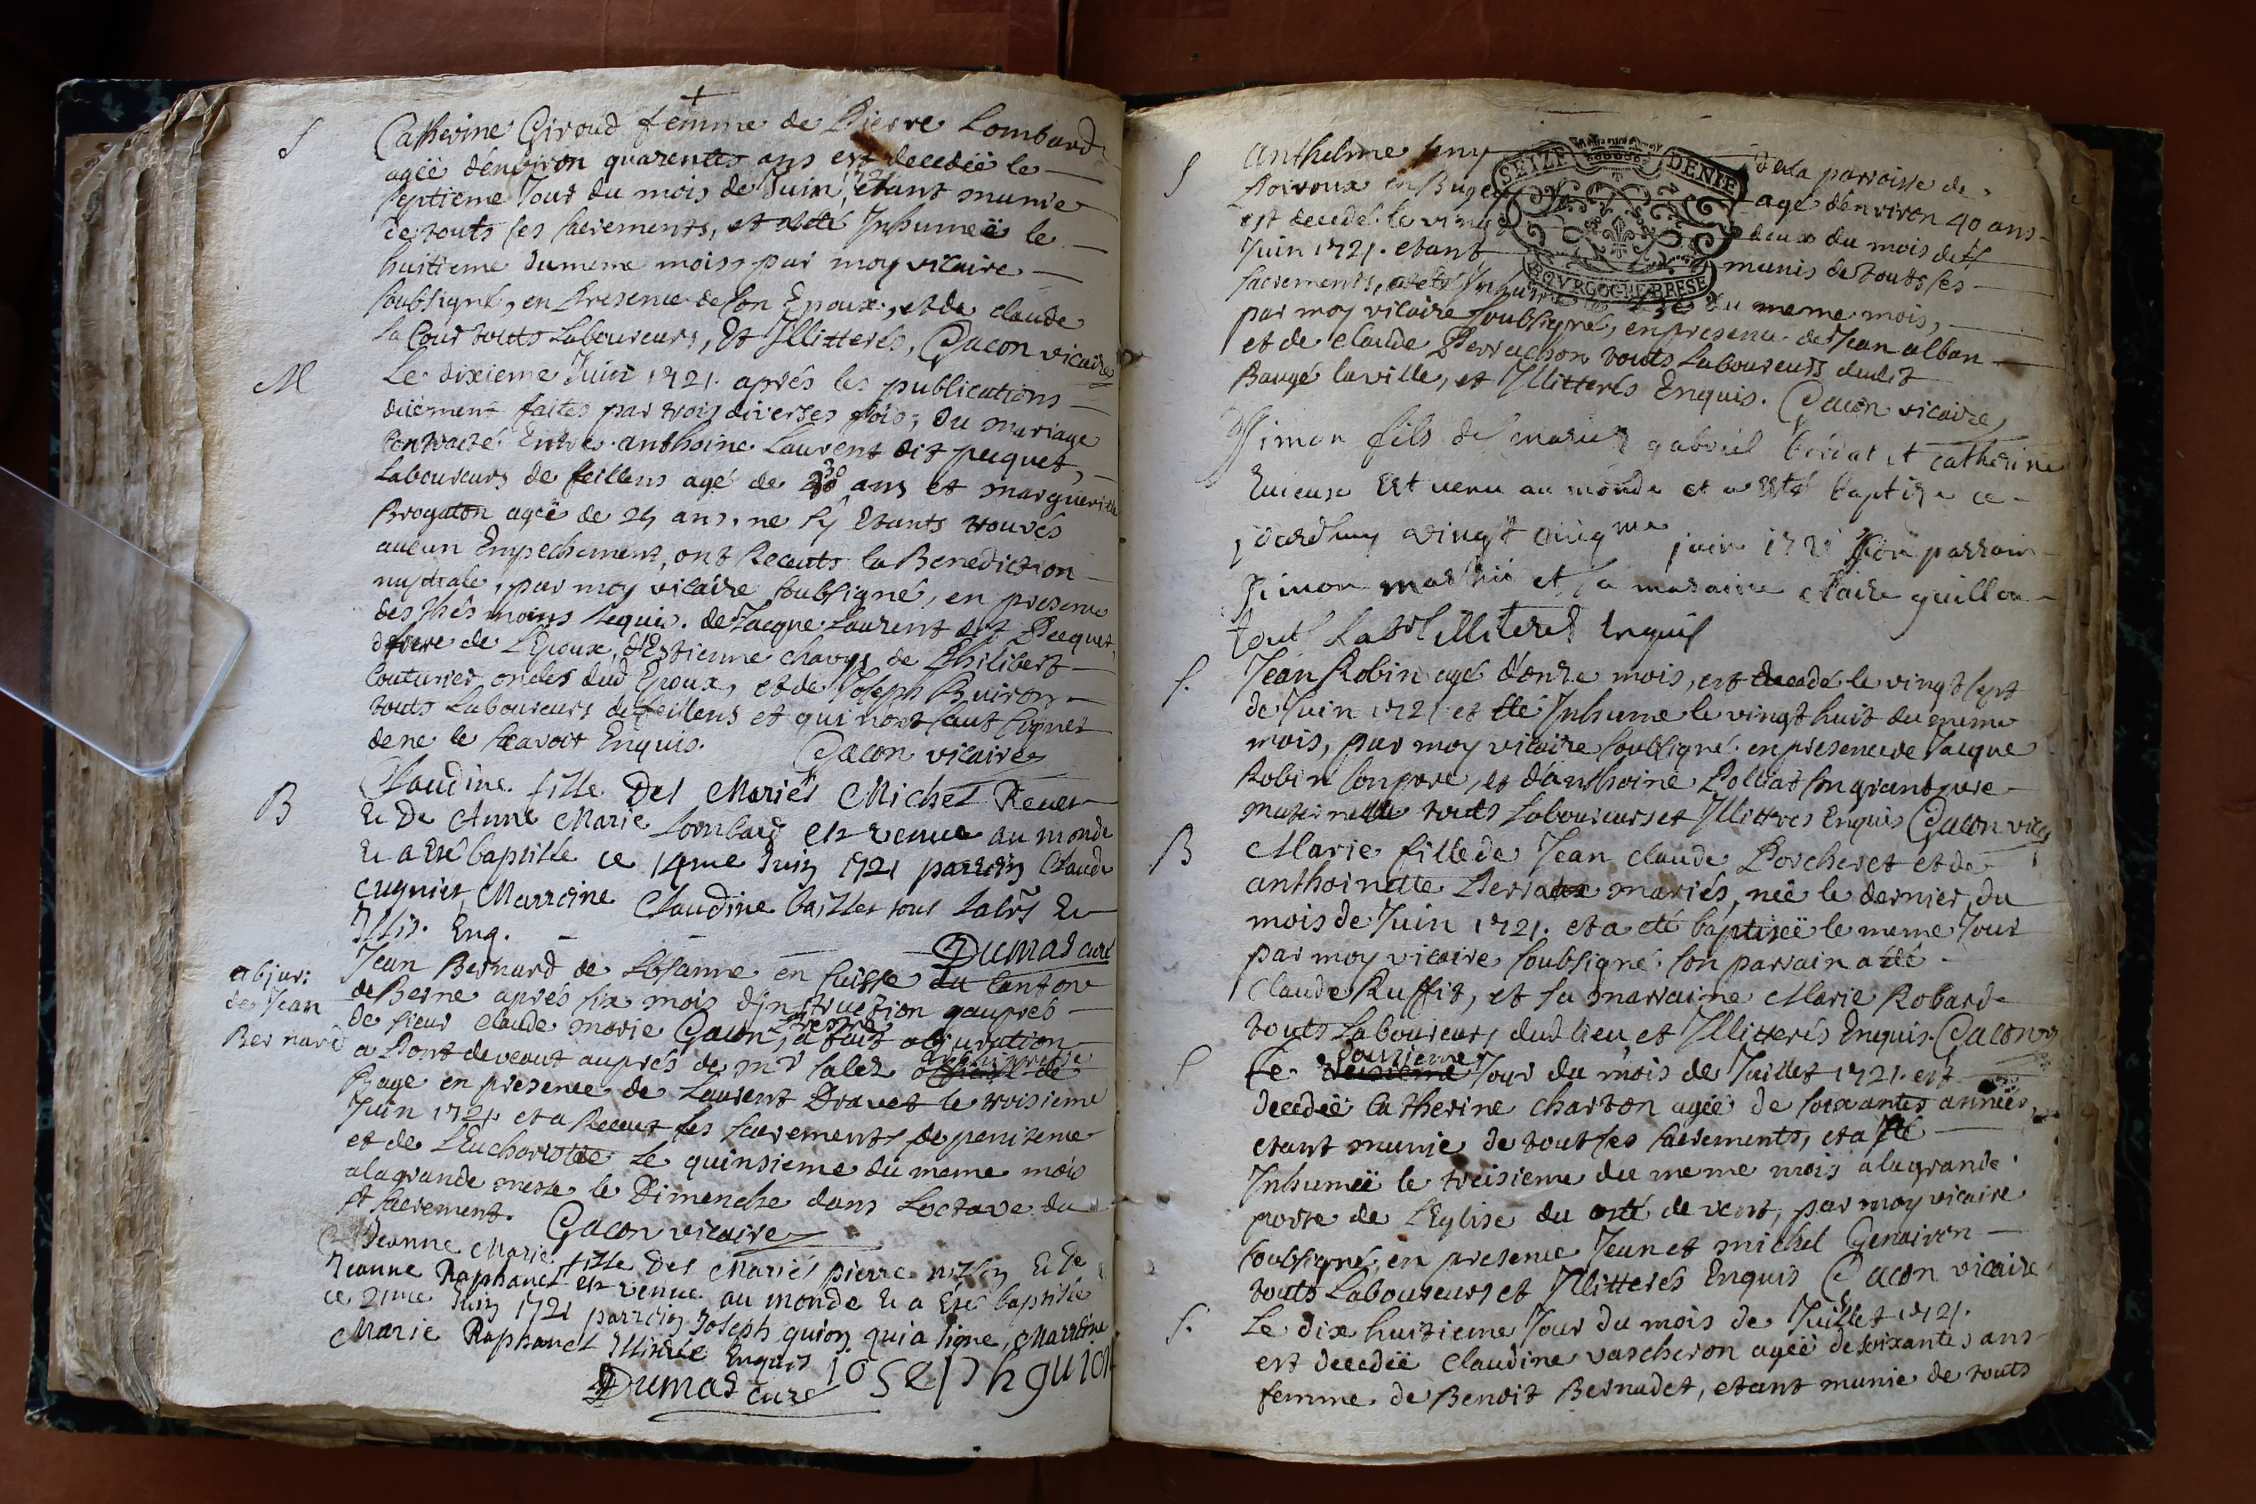 S
Catherine Giroud femme de Pierre Lombard
ageë d'environ quarentes ans est decedeë le
septieme Jour du mois de Juin, 1721 étant munie
de touts ses sacrements, et a eté Inhumeë le
huitieme du meme mois, par moy vicaire
soubsigné, en Presence de son Epoux, et de claude
la Cour touts Laboureurs, Et Illitterés, Gacon vicaire
M
Le dixieme Juin 1721. aprés les publications
deüement faites par trois diverses fois, du mariage
Contracté Entre anthoine Laurent dit pecquet,
Laboureurs de feillens agé de 30 ans et marguerite
Brogaton ageë de 25 ans, ne s'ÿ Etants trouvés
aucun Empechement, ont Receuts la Benediction
nuptiale, par moy vicaire soubsigné, en presence
des thémoins sequis. de Jacque Laurent dit Pecquet,
frere de L'Epoux, d'Estienne chavy, de Philibert
Couturier oncles dud Epoux, et de Joseph Buiron
touts Laboureurs de feillens et qui n'ont sceut signer
de ne le scavoir Enquis. Gacon vicaire
B
Claudine fille Des Mariés Michel Revel
Et De Anne Marie Lombard est venue au monde
Et a Eté baptisée ce 14me Juin 1721 parrein Claude
cugnier, Marreine Claudine baillet tous labrs Et
Illit. Enq.
Dumas curé
abjur:
de Jean
Bernard
Jean Bernard de Losanne en suisse du Canton
de Berne aprés six mois d'Instruction auprés
de sieur claude marie Gacon, Prestre, a fait abjuration
a Pont de veaut auprés de mr sales
Bage en presence de Laurent Dravet le troisieme
Juin 1721 et a Receut les sacrements de penitence
et de L'Eucharistie Le quinsieme du meme mois
a la grande messe le Dimenche dans Loctave du
st sacrement. Gacon vicaire
Jeanne Marie fille Des Mariés pierre Et De
Jeanne Raphanel est venue au monde Et a Eté baptisée
ce 21me Juin 1721 parrein Joseph guion qui a signe, Marreine
Marie Raphanel Illitrée Enquis
Joseph guion
Dumas Curé
S
anthelme
SEIZE DENIE
BOVRGOGNE BRESSE
de la parroisse de
en Bugey age d'environ 40 ans
est decedé le vingt deux du mois de
Juin 1721. etant munis de touts ses
sacrements, a eté Inhumé du meme mois,
par moy vicaire soubsigné, en presence de Jean alban
et de Claude Perrachon touts Laboureurs dudit
Baugé la ville, et Illitterés Enquis. Gacon vicaire
Simon fils des mariez gabriel et catherine
Est venu au monde et a esté baptize ce
jourdhuy vingt cinqme juin 1721 son parrain
Simon et sa maraine claire guillon
touts Labrs illiteres Enquis
S.
Jean Robin agé d'onze mois, est decedé le vingt sept
de Juin 1721 et eté Inhume le vingt huit du meme
mois, par moy vicaire soubsigné en presence de Jacque
Robin son pere, et d'anthoine Pollat son grant pere
maternelle touts Laboureurs et Illittres Enquis Gacon vic
B
Marie fille de Jean claude Porcheret et de
anthoinette mariés, neë le dernier du
mois de Juin 1721. et a eté baptiseë le meme Jour
par moy vicaire soubsigné. son parrain a eté
Claude Ruffit, et sa marraine Marie Robard
touts Laboureurs dud lieu et Illitterés Enquis. Gacon v
S
Le douzieme Jour du mois de Juillet 1721. est
decedeë Catherine charton ageë de soixantes années,
etant munie de tout ses sacrements, et a eté
Inhumeë le treisieme du meme mois a la grande
porte de L'Eglise du coté de vent, par moy vicaire
soubsigné, en presence Jean et michel Genairon
touts Laboureurs et Illitterés Enquis Gacon vicaire
S.
Le dix huitieme Jour du mois de Juillet 1721.
est decedeë Claudine vascheron ageë de soixantes ans
femme de Benoit Bernadet, etant munie de touts